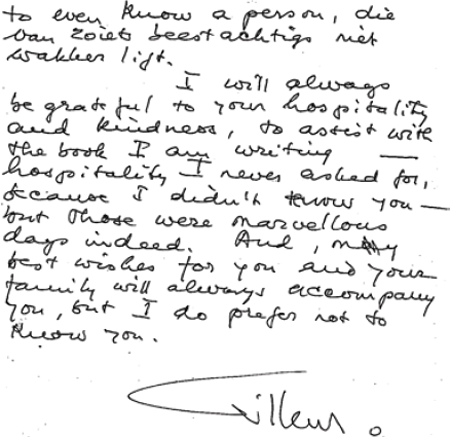 to even know a person, die
van zoiets beestachtigs niet
wakker ligt.
I will always
be grateful to your hospitality
and kindness, to assist with
the book I am writing —
hospitality I never asked for,
because I didn't know you —
but those were marvellous
days indeed. And, my
best wishes for you and your
family will always accompany
you, but I do prefer not to
know you.
Willem.